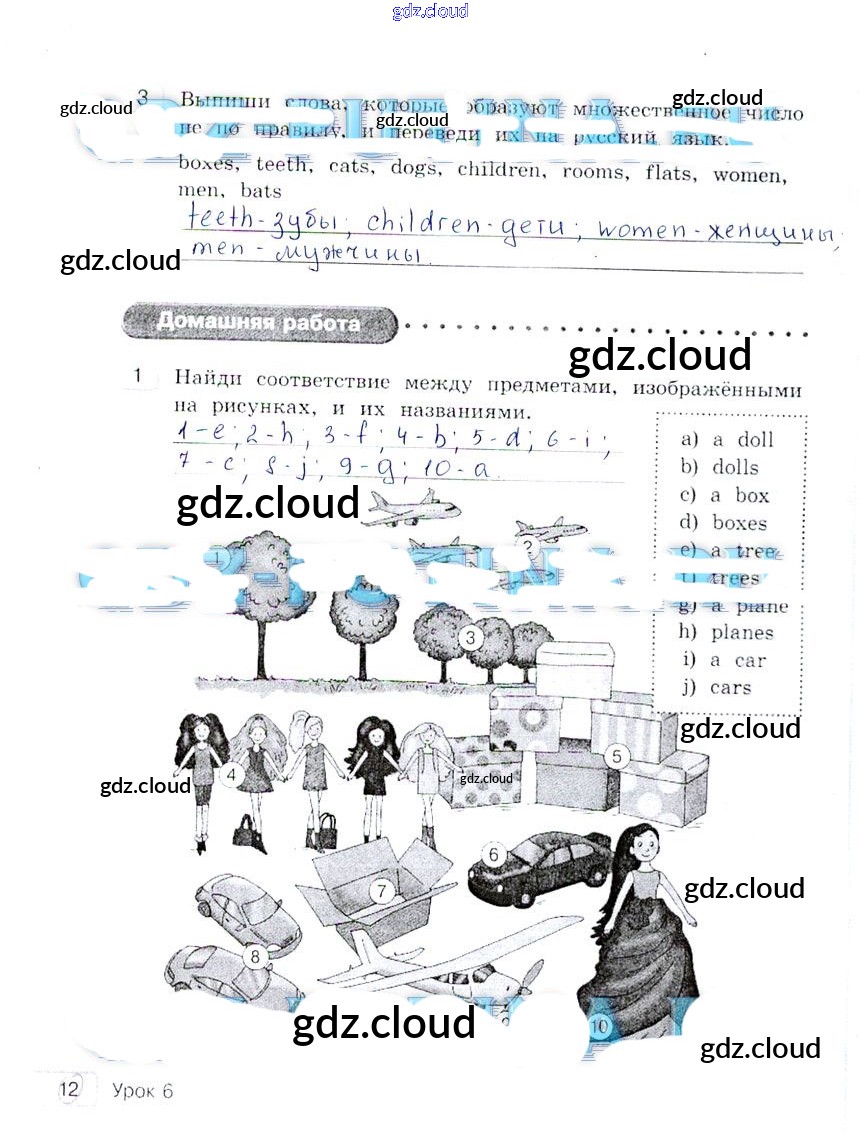 gdz.cloud
3 Выпиши слова, которые образуют множественное число
gdz.cloud gdz.cloud gdz.cloud
не по правилу, и переведи их на русский язык.
boxes, teeth, cats, dogs, children, rooms, flats, women,
men, bats
teeth-зубы; children-дети; women-женщины;
men-мужчины.
gdz.cloud
Домашняя работа
gdz.cloud
1 Найди соответствие между предметами, изображёнными
на рисунках, и их названиями.
1-e; 2-h; 3-f; 4-b; 5-d; 6-i;
7-c; 8-j; 9-g; 10-a.
gdz.cloud
a) a doll
b) dolls
c) a box
d) boxes
e) a tree
f) trees
g) a plane
h) planes
i) a car
j) cars
1
2
3
gdz.cloud
4
5
gdz.cloud
gdz.cloud
6
7
gdz.cloud
8
gdz.cloud
10
gdz.cloud
12 Урок 6